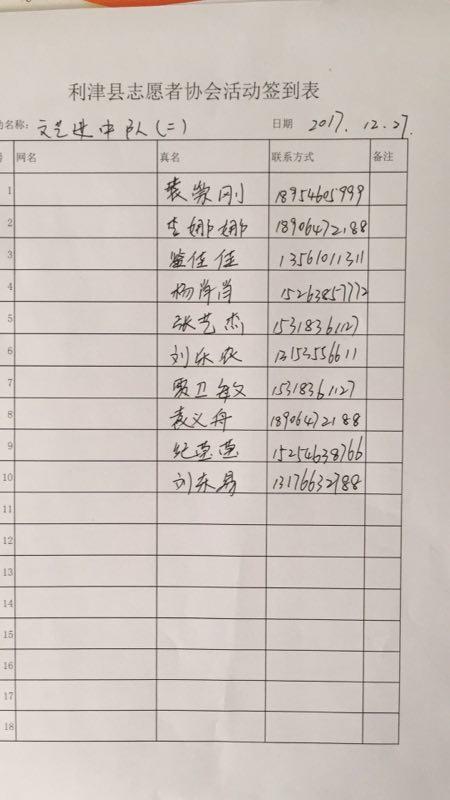 利津县志愿者协会活动签到表
动名称: 文艺进中队(二) 日期 2017.12.27.
号 网名 真名 联系方式 备注
1 袁崇刚 18954605999
2 李娜娜 18906472188
3 监佳佳 13561011311
4 杨肖肖 15263857772
5 张艺杰 15318361127
6 刘乐农 13153556611
7 贾卫敏 15318361127
8 袁义舟 18906472188
9 纪莹莹 15254638766
10 刘东易 13176632788
11
12
13
14
15
16
17
18